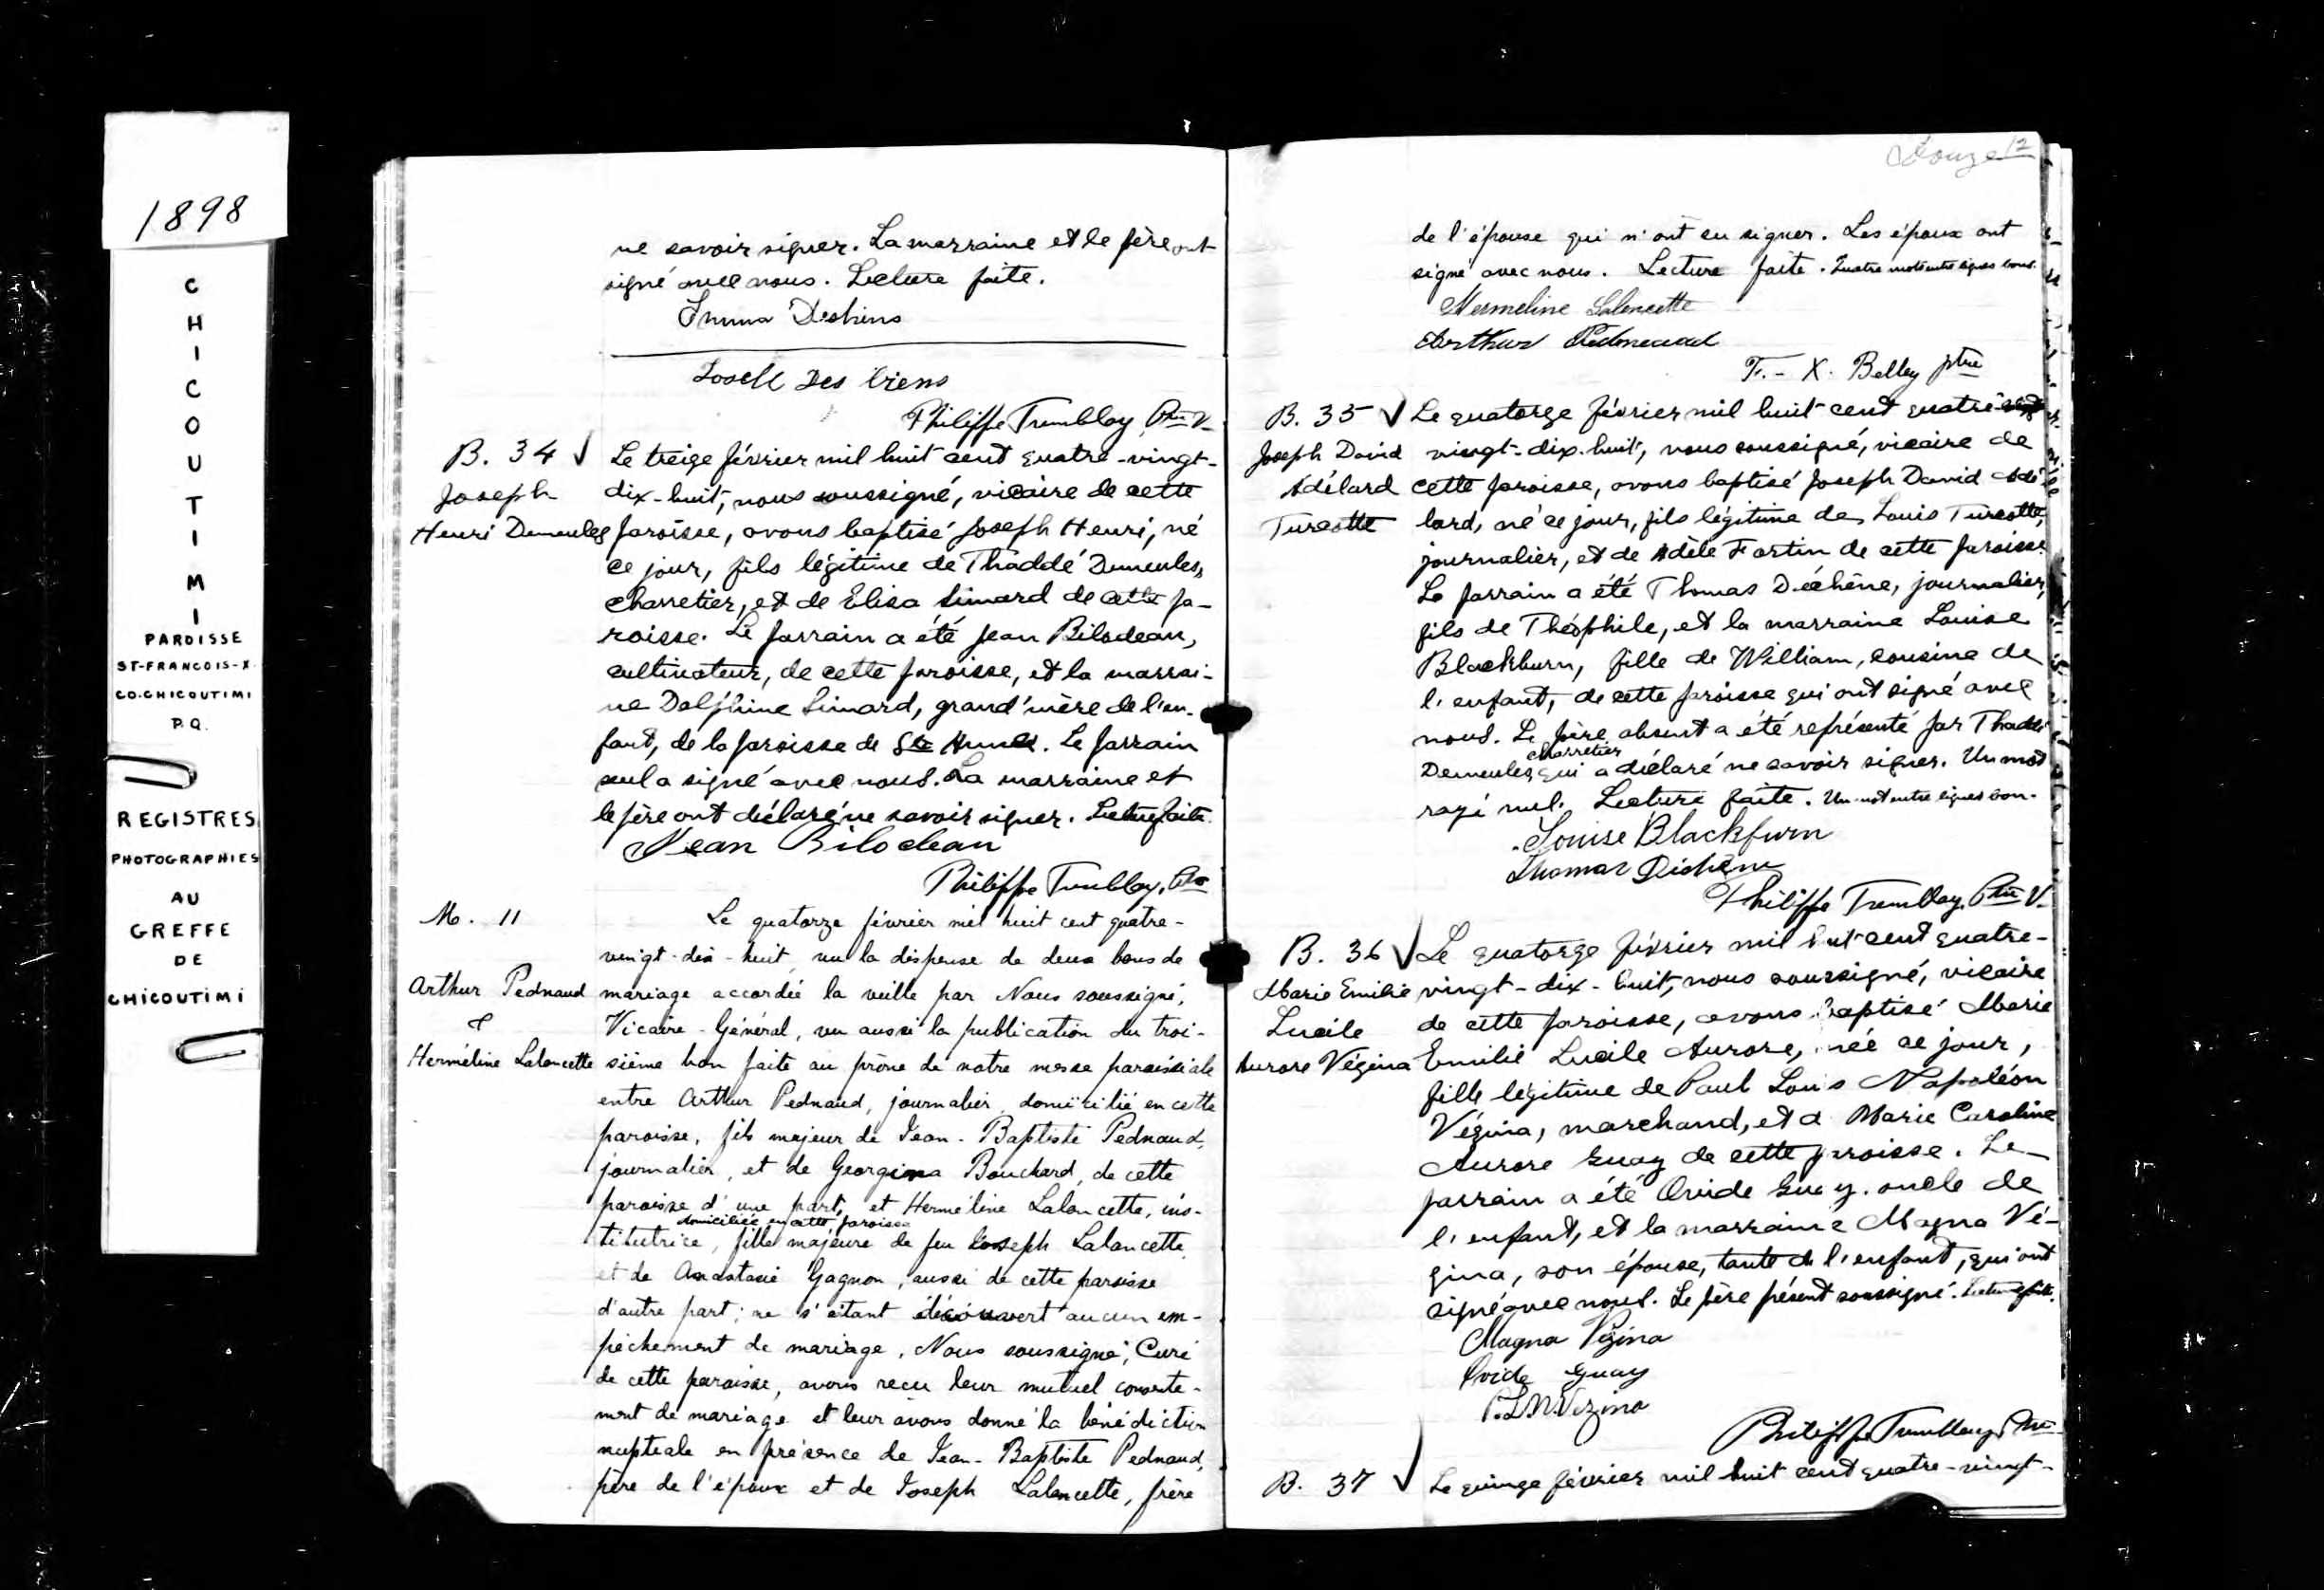 1898
CHICOUTIMI
PAROISSE
ST-FRANCOIS-X
CO.CHICOUTIMI
P.Q.
REGISTRES
PHOTOGRAPHIES
AU
GREFFE
DE
CHICOUTIMI
ne savoir signer. La marraine et le père ont
signé avec nous. Lecture faite.
Emma Deshiens
Joseph Des biens
Philippe Tremblay, Ptre V.
B. 34 √
Joseph
Henri Demeules
Le treize février mil huit cent quatre-vingt-
dix-huit, nous soussigné, vicaire de cette
paroisse, avons baptisé Joseph Henri, né
ce jour, fils légitime de Thaddé Demeules,
charretier, et de Elisa Simard de cette pa-
roisse. Le parrain a été Jean Bilodeau,
cultivateur, de cette paroisse, et la marrai-
ne Delphine Simard, grand'mère de l'en-
fant, de la paroisse de Ste Anne. Le parrain
seul a signé avec nous. La marraine et
le père ont déclaré ne savoir signer. Lecture faite.
Jean Bilodeau
Philippe Tremblay, Ptre
M. 11
Arthur Pednaud
&
Herméline Lalancette
Le quatorze février mil huit cent quatre-
vingt-dix-huit, vu la dispense de deux bans de
mariage accordée la veille par Nous soussigné,
Vicaire-Général, vu aussi la publication du troi-
sième ban faite au prône de notre messe paroissiale
entre Arthur Pednaud, journalier, domicilié en cette
paroisse, fils majeur de Jean-Baptiste Pednaud,
journalier, et de Georgina Bouchard, de cette
paroisse d'une part, et Herméline Lalancette, ins-
domiciliée en cette paroisse
titutrice, fille majeure de feu Joseph Lalancette
et de Anastasie Gagnon, aussi de cette paroisse
d'autre part; ne s'étant découvert aucun em-
pêchement de mariage, Nous soussigné, Curé
de cette paroisse, avons reçu leur mutuel consente-
ment de mariage et leur avons donné la bénédiction
nuptiale en présence de Jean-Baptiste Pednaud,
père de l'époux et de Joseph Lalancette, frère
Douze 12
de l'épouse qui n'ont su signer. Les époux ont
signé avec nous. Lecture faite. Quatre mots entre lignes bons.
Hermeline Lalencette
Arthur Pedneaud
F.-X. Belley ptre
B. 35 √
Joseph David
Adélard
Turcotte
Le quatorze février mil huit cent quatre-
vingt-dix-huit, nous soussigné, vicaire de
cette paroisse, avons baptisé Joseph David Adé-
lard, né ce jour, fils légitime de Louis Turcotte,
journalier, et de Adèle Fortin de cette paroisse.
Le parrain a été Thomas Déchêne, journalier,
fils de Théophile, et la marraine Louise
Blackburn, fille de William, cousine de
l'enfant, de cette paroisse qui ont signé avec
nous. Le père absent a été représenté par Thaddé
charretier
Demeules, qui a déclaré ne savoir signer. Un mot
rayé nul. Lecture faite. Un mot entre lignes bon.
Louise Blackburn
Thomas Dichêne
Philippe Tremblay, Ptre V.
B. 36 √
Marie Emilie
Lucile
Aurore Vézina
Le quatorze février mil huit cent quatre-
vingt-dix-huit, nous soussigné, vicaire
de cette paroisse, avons baptisé Marie
Emilie Lucile Aurore, née ce jour,
fille légitime de Paul Louis Napoléon
Vézina, marchand, et d Marie Caroline
Aurore Guay de cette paroisse. Le
parrain a été Ovide Guay, oncle de
l'enfant, et la marraine Magna Vé-
zina, son épouse, tante de l'enfant, qui ont
signé avec nous. Le père présent soussigné. Lecture faite.
Magna Vézina
Ovide Guay
P.L.N. Vezina
Philippe Tremblay, Ptre
B. 37 √
Le quinze février mil huit cent quatre-vingt-